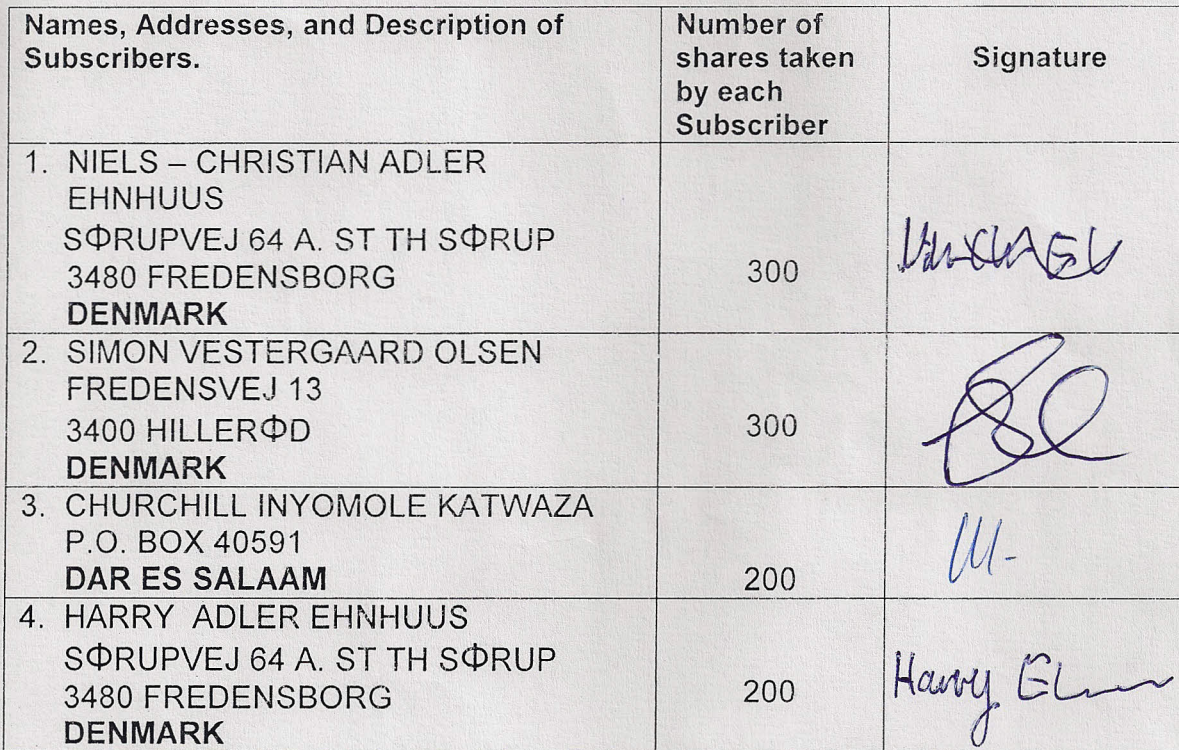 Names, Addresses, and Description of
Subscribers.
Number of
shares taken
by each
Subscriber
Signature
1. NIELS – CHRISTIAN ADLER
EHNHUUS
SΦRUPVEJ 64 A. ST TH SΦRUP
3480 FREDENSBORG
DENMARK
300
2. SIMON VESTERGAARD OLSEN
FREDENSVEJ 13
3400 HILLERΦD
DENMARK
300
3. CHURCHILL INYOMOLE KATWAZA
P.O. BOX 40591
DAR ES SALAAM
200
4. HARRY ADLER EHNHUUS
SΦRUPVEJ 64 A. ST TH SΦRUP
3480 FREDENSBORG
DENMARK
200
Harry